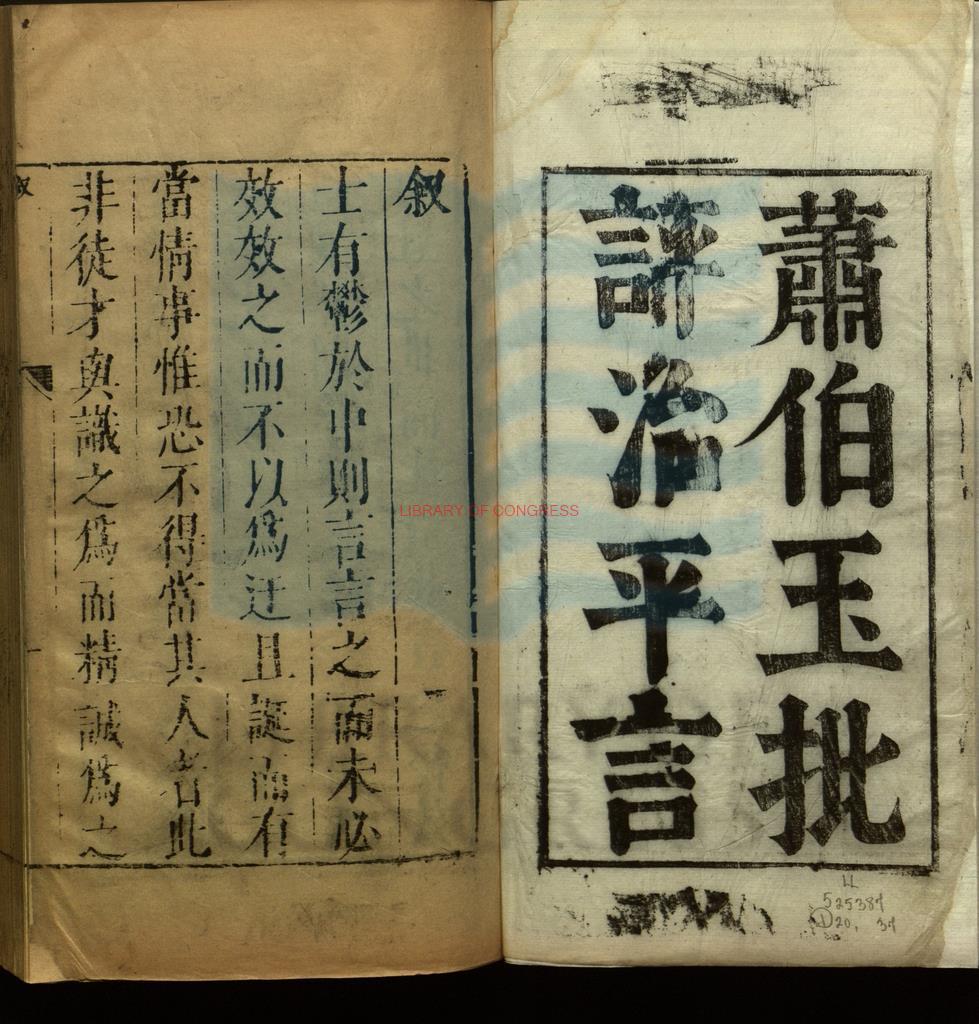 蕭伯玉批
評治平言
叙
士有鬱於中則言言之而未必
效效之而不以爲迂且誕而有
當情事惟恐不得當其人者此
非徒才與識之爲而精誠爲之
叙
LIBRARY OF CONGRESS
525387
D20.